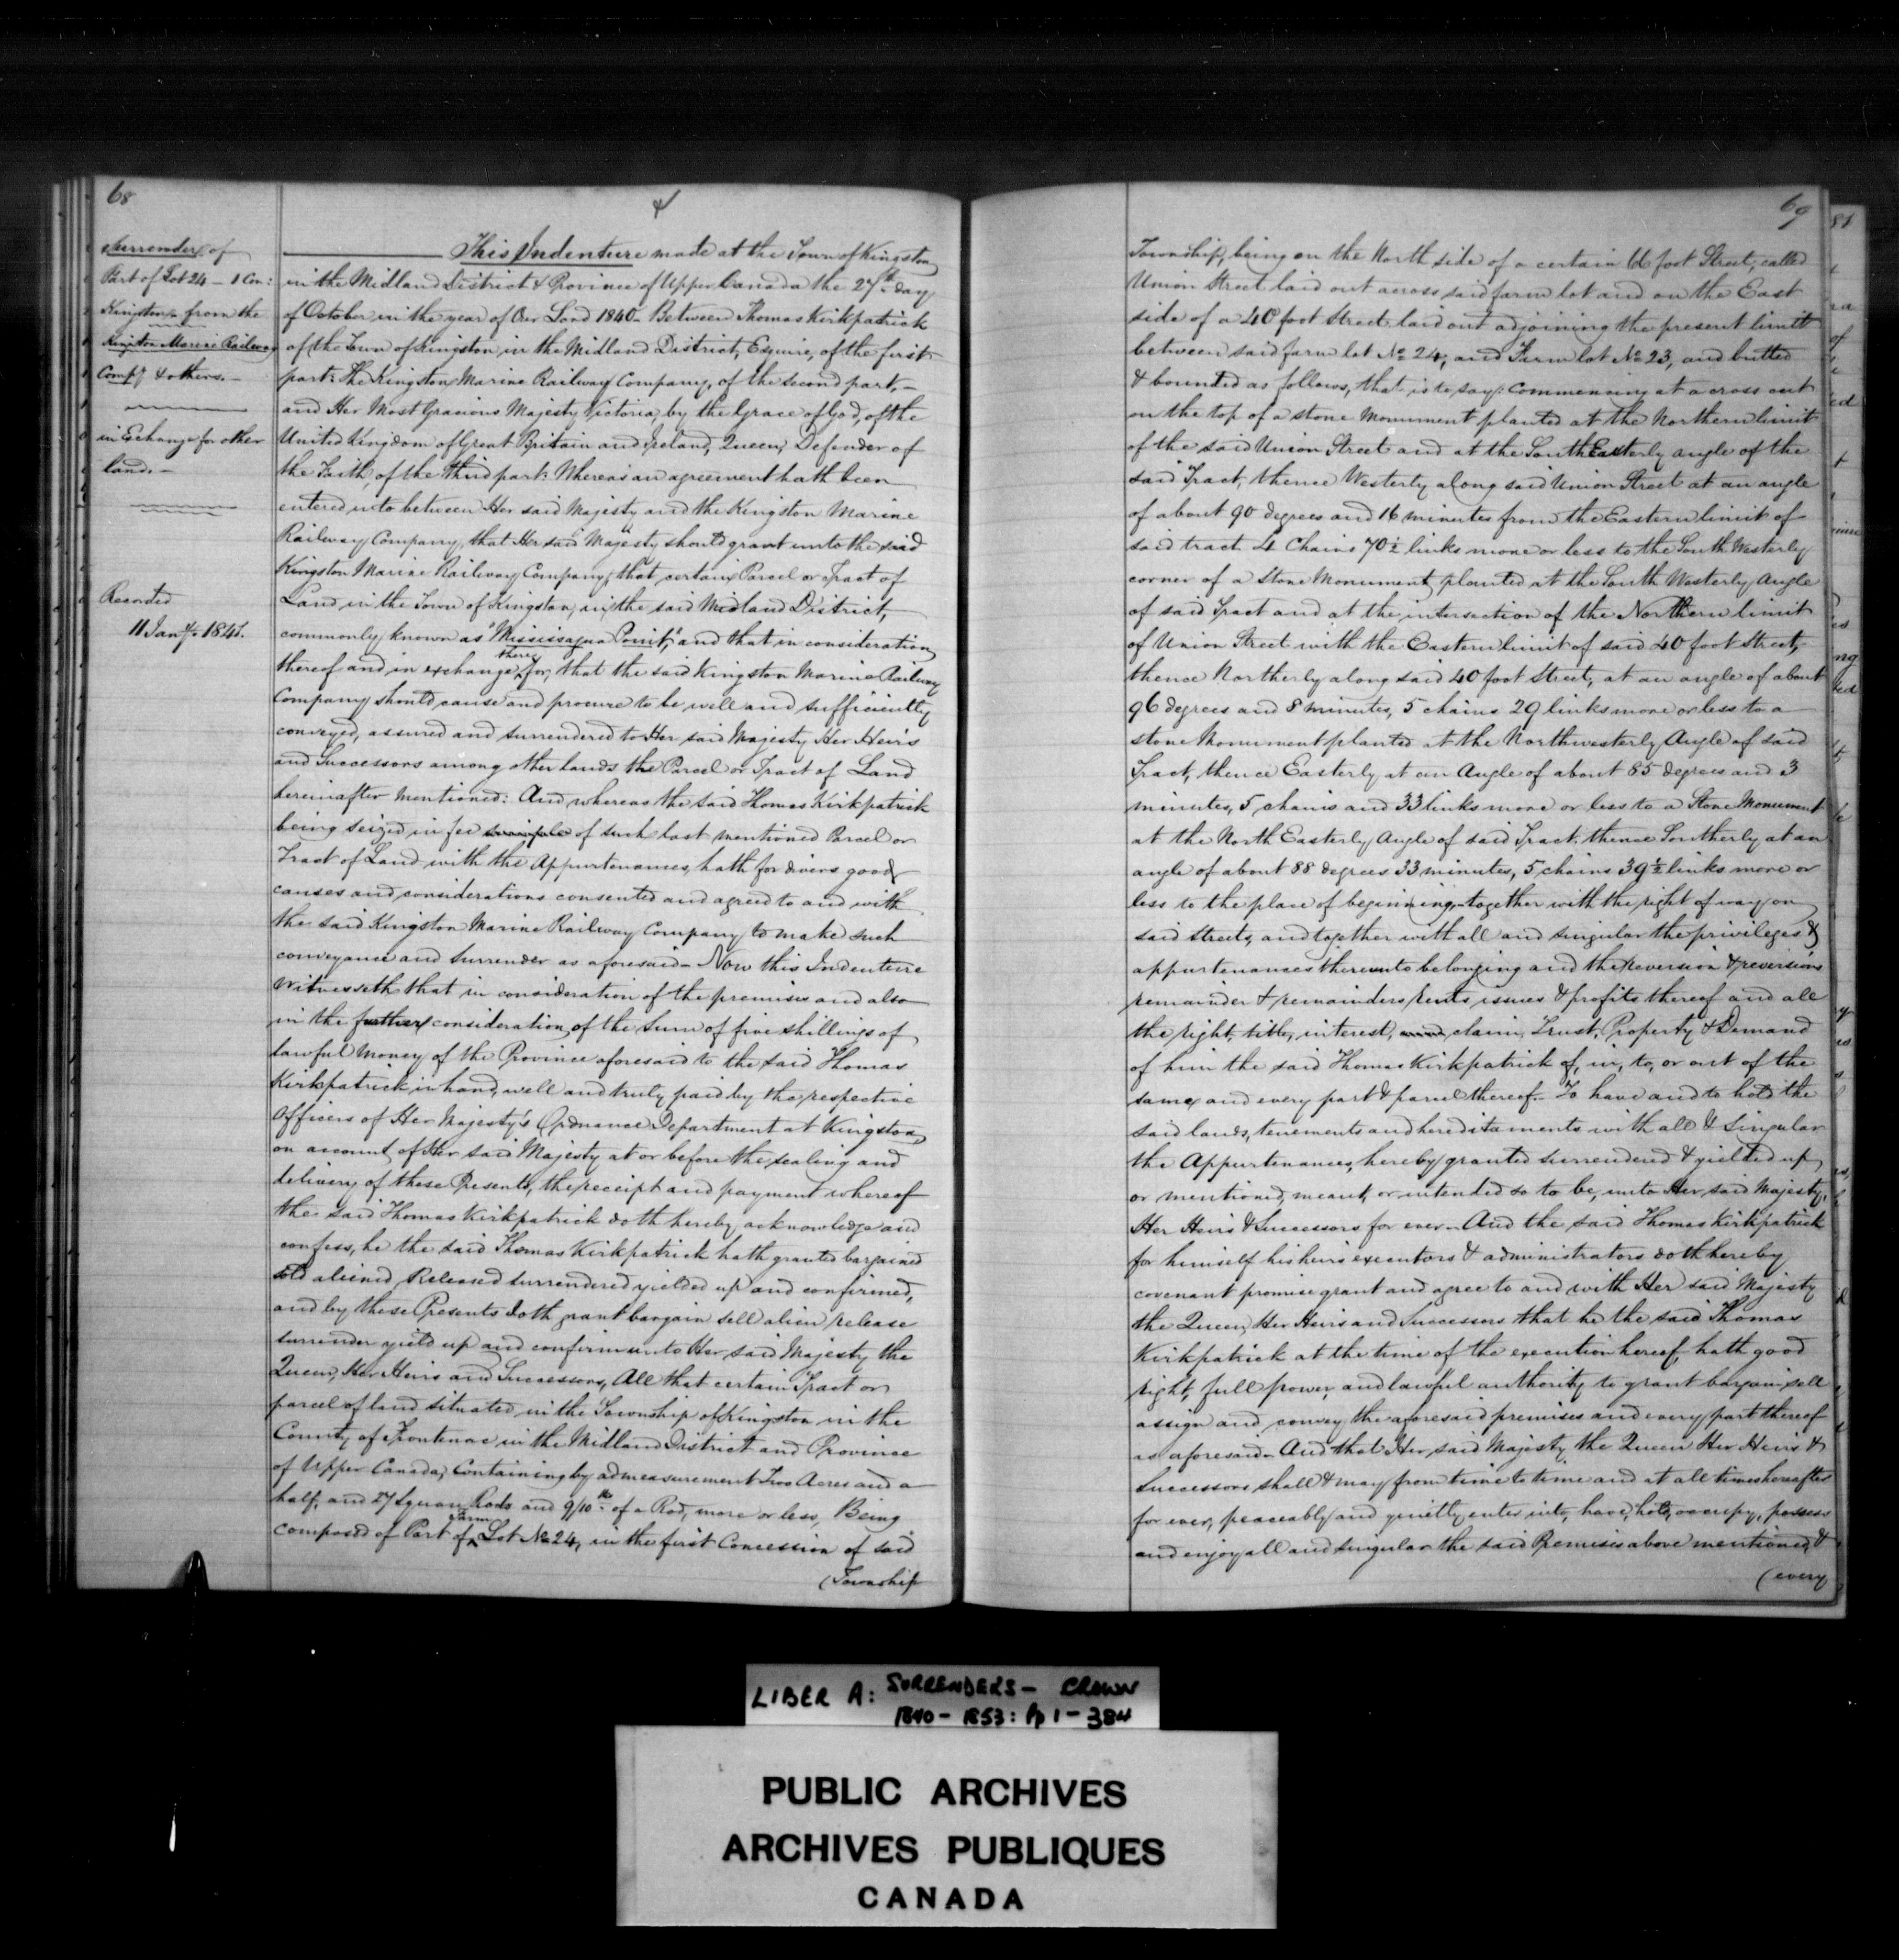 68
4
Surrender of
Part of Lot 24 - 1 Con:
Kingston from the
Kingston Marine Railway
Compy. & others. -
in Exchange for other
land. -
Recorded
11 Jany. 1841.
This Indenture made at the Town of Kingston
in the Midland District & Province of Upper Canada the 27th day
of October in the year of Our Lord 1840 - Between Thomas Kirkpatrick
of the Town of Kingston in the Midland District, Esquire, of the first
part: The Kingston Marine Railway Company, of the second part, -
and Her Most Gracious Majesty Victoria, by the Grace of God, of the
United Kingdom of Great Britain and Ireland, Queen, Defender of
the Faith, of the Third part: Whereas an agreement hath been
entered into between Her said Majesty and the Kingston Marine
Railway Company, that Her said Majesty should grant unto the said
Kingston Marine Railway Company, that certain Parcel or Tract of
Land in the Town of Kingston, in the said Midland District,
commonly known as "Mississagua Point," and that in consideration
thereof and in exchange there for, that the said Kingston Marine Railway
Company should cause and procure to be well and sufficiently
conveyed, assured and surrendered to Her said Majesty Her Heirs
and Successors among other lands the Parcel or Tract of Land
hereinafter mentioned: And whereas the said Thomas Kirkpatrick
being seized in fee simple of such last mentioned Parcel or
Tract of Land with the Appurtenances, hath for divers good
causes and considerations consented and agreed to and with
the said Kingston Marine Railway Company to make such
conveyance and surrender as aforesaid - Now this Indenture
Witnesseth that in consideration of the premises and also
in the further consideration of the Sum of five shillings of
lawful Money of the Province aforesaid to the said Thomas
Kirkpatrick in hand, well and truly paid by the respective
Officers of Her Majesty's Ordnance Department at Kingston,
on account of Her said Majesty at or before the sealing and
delivery of these Presents, the receipt and payment whereof
the said Thomas Kirkpatrick doth hereby acknowledge and
confess, he the said Thomas Kirkpatrick hath granted bargained
sold aliened Released surrendered yielded up and confirmed,
and by these Presents doth grant bargain sell alien release
surrender yield up and confirm unto Her said Majesty the
Queen, Her Heirs and Successors, All that certain Tract or
parcel of land situated in the Township of Kingston in the
County of Frontenac in the Midland District and Province
of Upper Canada, Containing by admeasurement Two Acres and a
half, and 27 Square Rods and 9/10ths of a Rod, more or less, Being
composed of Part of Farm Lot No 24, in the first Concession of said
(Township
69
Township, being on the North side of a certain 66 foot Street, called
Union Street laid out across said farm lot and on the East
side of a 40 foot Street laid out adjoining the present limit
between said farm lot No 24, and Farm lot No 23, and butted
& bounded as follows, that is to say: Commencing at a cross cut
on the top of a stone Monument planted at the Northern limit
of the said Union Street and at the South Easterly angle of the
said Tract, thence Westerly along said Union Street at an angle
of about 90 degrees and 16 minutes from the Eastern limit of
said tract 4 Chains 70½ links more or less to the South Westerly
corner of a Stone Monument planted at the South Westerly Angle
of said Tract and at the intersection of the Northern limit
of Union Street with the Eastern limit of said 40 foot Street,
thence Northerly along said 40 foot Street, at an angle of about
96 degrees and 8 minutes, 5 chains 29 links more or less to a
stone Monument planted at the Northwesterly Angle of said
Tract, thence Easterly at an Angle of about 85 degrees and 3
minutes, 5 chains and 33 links more or less to a Stone Monument
at the North Easterly Angle of said Tract. thence Southerly at an
angle of about 88 degrees 33 minutes, 5 chains 39½ links more or
less to the place of beginning, together with the right of way on
said streets, and together with all and singular the privileges &
appurtenances thereunto belonging and the Reversion & reversions
remainder & remainders rents issues & profits thereof and all
the right, title, interest, claim, Trust, Property & Demand
of him the said Thomas Kirkpatrick of, in, to, or out of the
same and every part & parcel thereof - To have and to hold the
said lands, tenements and hereditaments with all & Singular
the Appurtenances, hereby granted surrendered & yielded up
or mentioned, meant, or intended so to be, unto Her said Majesty,
Her Heirs & Successors for ever - And the said Thomas Kirkpatrick
for himself his heirs executors & administrators doth hereby
covenant promise grant and agree to and with Her said Majesty
the Queen, Her Heirs and Successors that he the said Thomas
Kirkpatrick at the time of the execution hereof, hath good
right, full power, and lawful authority to grant bargain sell
assign and convey the aforesaid premises and every part thereof
as aforesaid - And that Her said Majesty the Queen Her Heirs &
Successors shall & may from time to time and at all times hereafter
for ever, peaceably and quietly enter into, have, hold, occupy, possess
and enjoy all and singular the said Premises above mentioned, &
(every
LIBER A: SURRENDERS - CROWN
1840 - 1853: Pp 1 - 384
PUBLIC ARCHIVES
ARCHIVES PUBLIQUES
CANADA